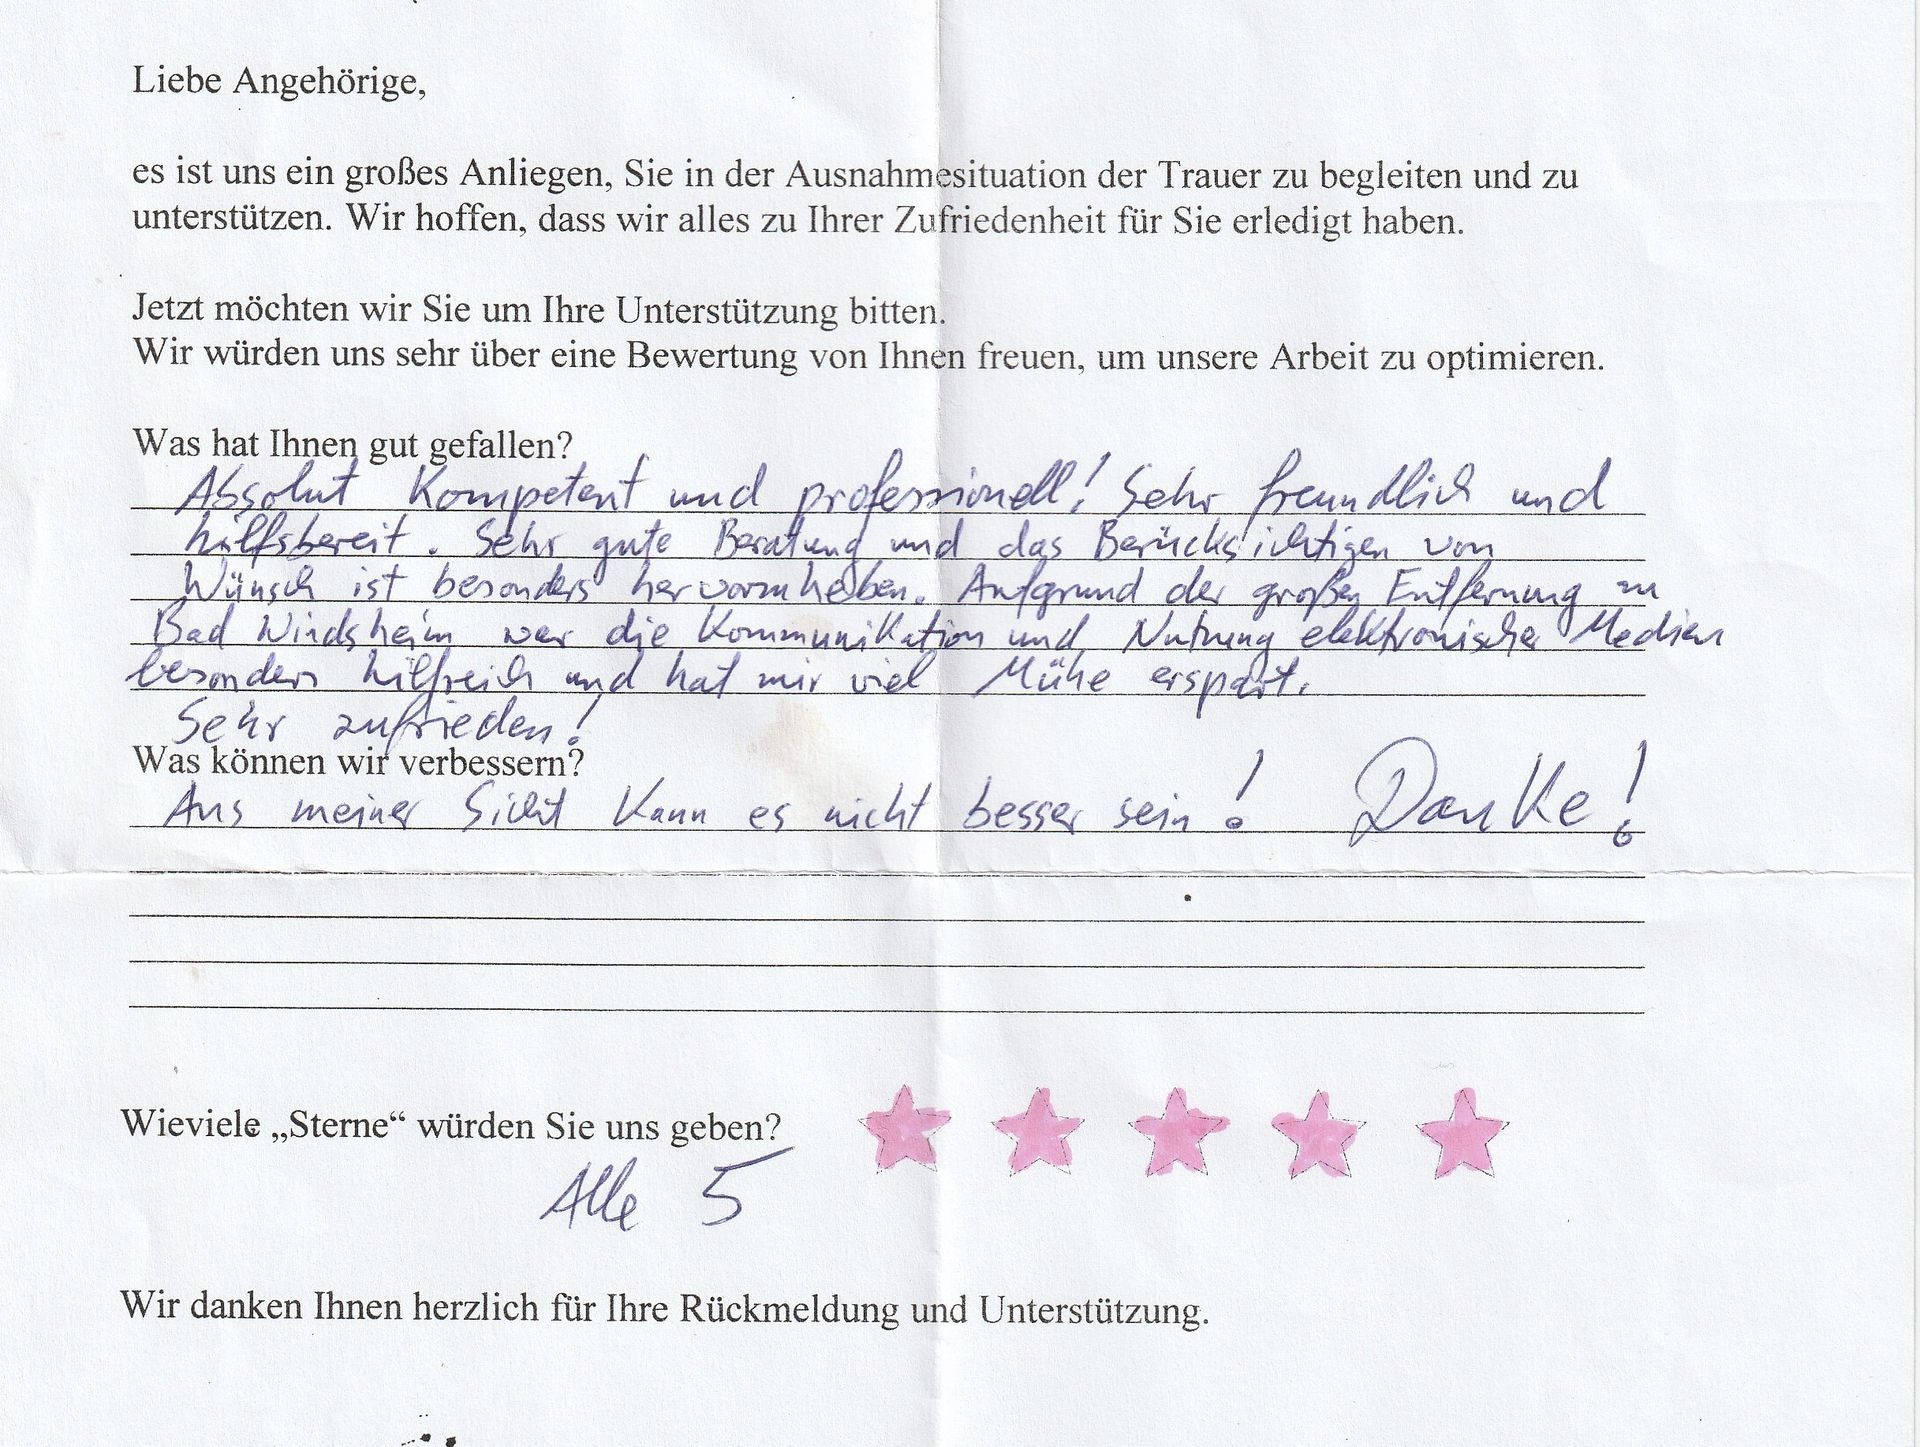 Liebe Angehörige,
es ist uns ein großes Anliegen, Sie in der Ausnahmesituation der Trauer zu begleiten und zu
unterstützen. Wir hoffen, dass wir alles zu Ihrer Zufriedenheit für Sie erledigt haben.
Jetzt möchten wir Sie um Ihre Unterstützung bitten.
Wir würden uns sehr über eine Bewertung von Ihnen freuen, um unsere Arbeit zu optimieren.
Was hat Ihnen gut gefallen?
Absolut Kompetent und professionell! Sehr freundlich und
hilfsbereit. Sehr gute Beratung und das Berücksichtigen von
Wünsch ist besonders hervorzuheben. Aufgrund der großen Entfernung zu
Bad Windsheim war die Kommunikation und Nutzung elektronischer Medien
besonders hilfreich und hat mir viel Mühe erspart.
Sehr zufrieden!
Was können wir verbessern?
Aus meiner Sicht kann es nicht besser sein! Danke!
Wieviele „Sterne“ würden Sie uns geben?
Alle 5
Wir danken Ihnen herzlich für Ihre Rückmeldung und Unterstützung.